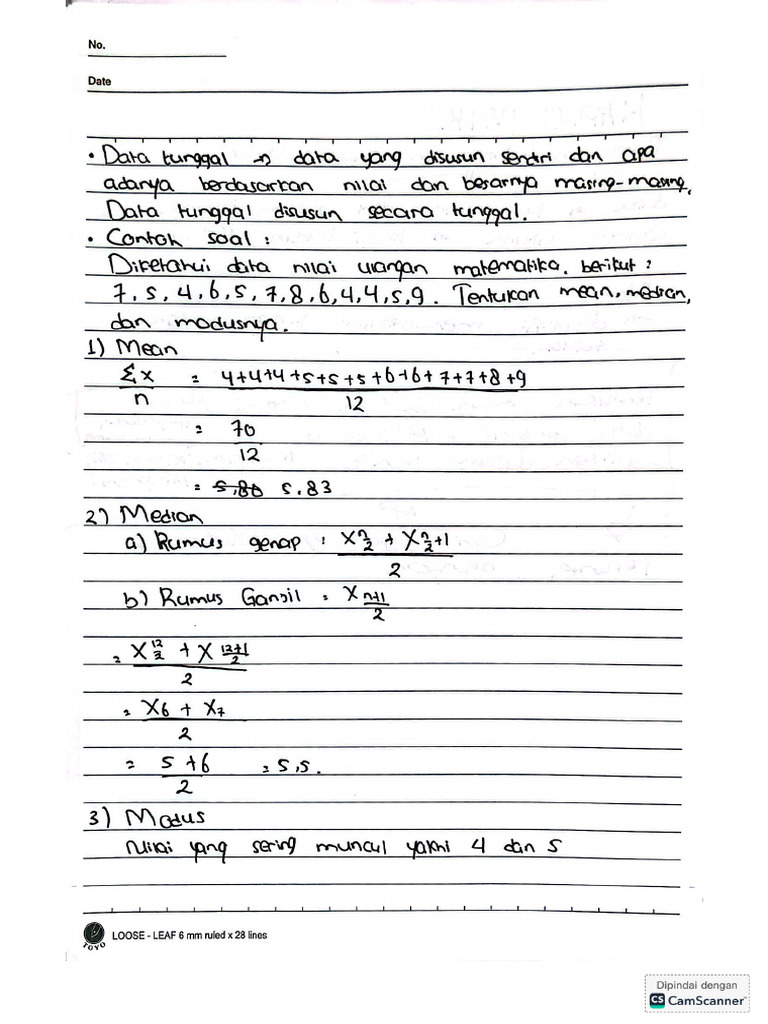 No.
Date
• Data tunggal => data yang disusun sendiri dan apa
adanya berdasarkan nilai dan besarnya masing-masing.
Data tunggal disusun secara tunggal.
• Contoh soal :
Diketahui data nilai ulangan matematika. berikut :
7, 5, 4, 6, 5, 7, 8, 6, 4, 4, 5, 9. Tentukan mean, median,
dan modusnya.
1) Mean
Σx/n = 4+4+4+5+5+5+6+6+7+7+8+9 / 12
= 70/12
= 5,83
2) Median
a) Rumus genap : X n/2 + X n/2+1 / 2
b) Rumus Ganjil : X n+1/2
= X 12/2 + X 12+1/2 / 2
= X6 + X7 / 2
= 5+6 / 2 = 5,5.
3) Modus
Nilai yang sering muncul yakni 4 dan 5
TOYO LOOSE - LEAF 6 mm ruled x 28 lines
Dipindai dengan
CS CamScanner